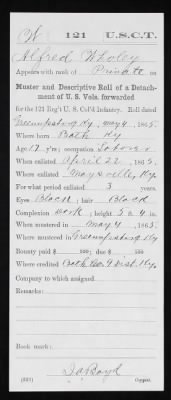 W 121 U.S.C.T.
Alfred Wholey
Appears with rank of Private on
Muster and Descriptive Roll of a Detach-
ment of U. S. Vols. forwarded
for the 121 Reg't U. S. Col'd Infantry. Roll dated
Greenupsburg Ky, May 4, 1865.
Where born Bath Ky
Age 17 y'rs; occupation Laborer
When enlisted April 22, 1865.
Where enlisted Maysville, Ky.
For what period enlisted 3 years.
Eyes Black; hair Black
Complexion; height 5 ft. 4 in.
When mustered in May 4, 1865.
Where mustered in Greenupsburg Ky
Bounty paid $ 100; due $ 100
Where credited Bath Co. 9 Dist. Ky.
Company to which assigned
Remarks:
Book mark:
Boyd
(321) Copyist.